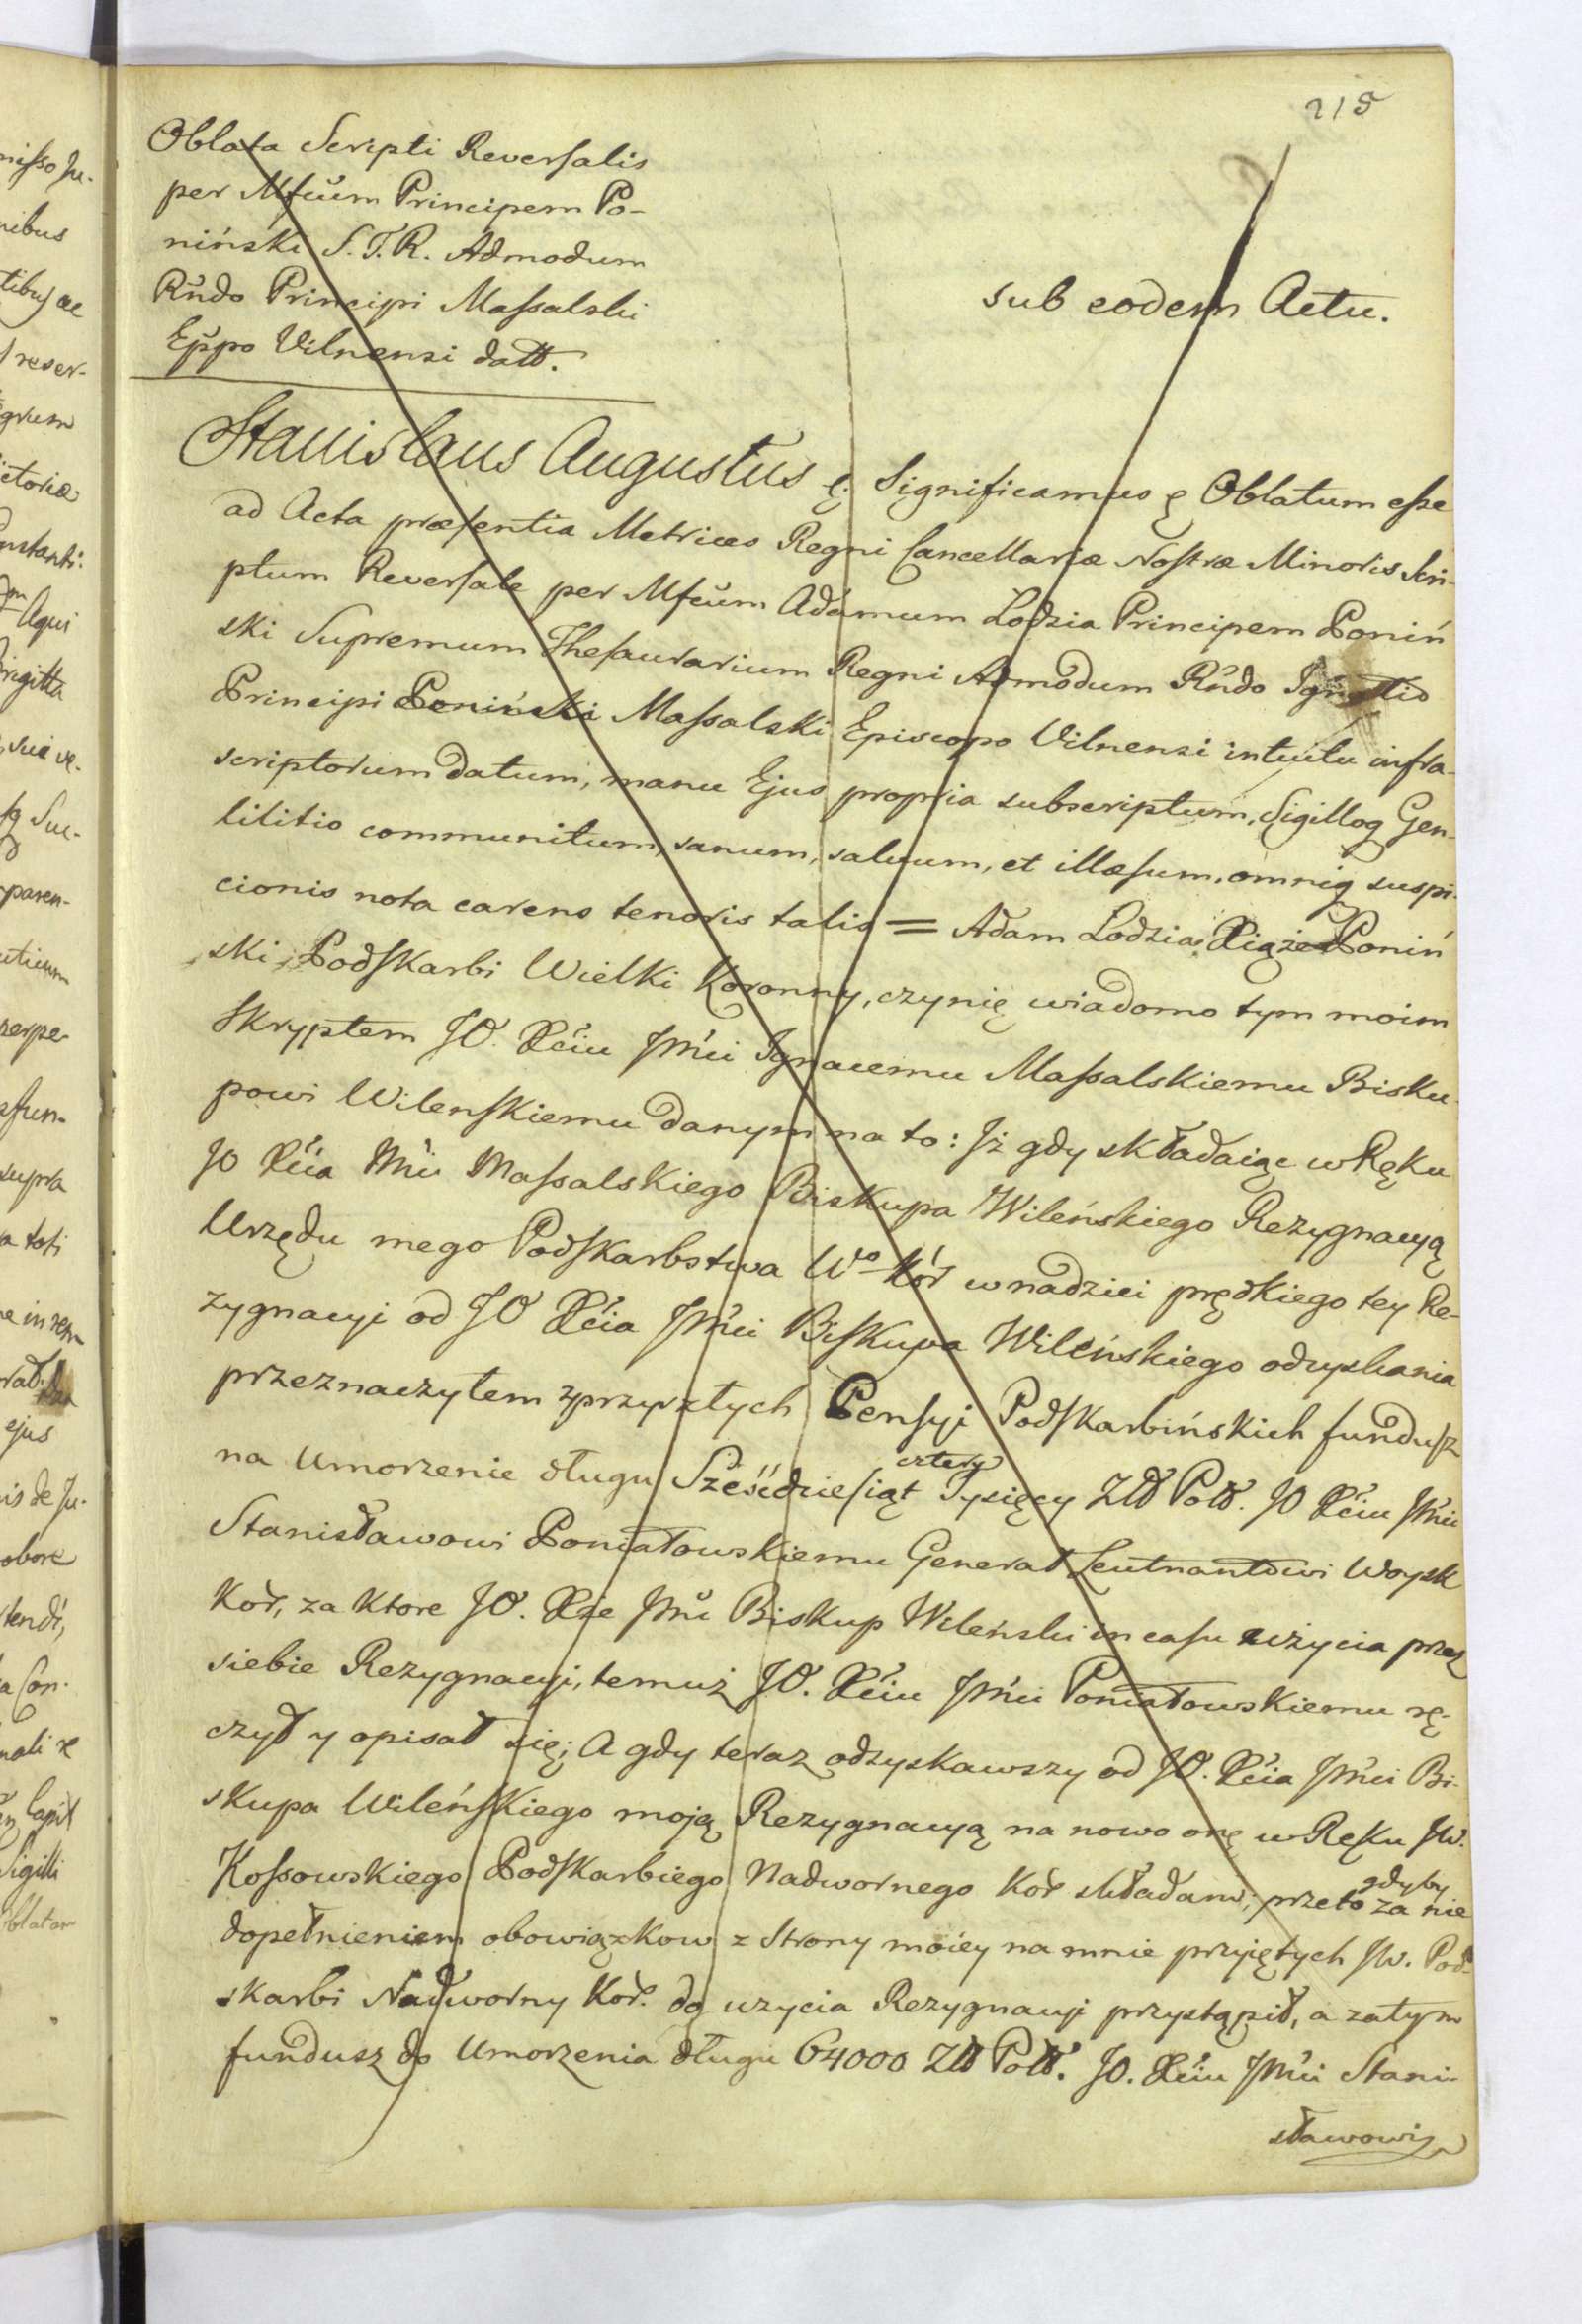 215
Oblata Scripti Reversalis
per Mfcum Principem Po-
niński S. T. R. Admodum
Rndo Principi Massalski
Eppo Vilnensi datt.
sub eodem Actu.
Stanislaus Augustus Significamus Oblatum esse
ad Acta præsentia Metrices Regni Cancellariæ Nostræ Minoris Scri-
ptum Reversale per Mfcum Adamum Lodzia Principem Poniń
ski Supremum Thesaurarium Regni Admodum Rndo Ignatio
Principi Poniński Massalski Episcopo Vilnensi intuitu infra-
scriptorum datum, manu Ejus propria subscriptum, Sigilloq Gen-
tilitio communitum, sanum, salvum, et illæsum, omniq suspi-
cionis nota carens tenoris talis = Adam Lodzia Xiąże Poniń
ski Podskarbi Wielki Koronny, czynię wiadomo tym moim
Skryptem JO. Xciu Jmci Ignacemu Massalskiemu Bisku-
powi Wilenskiemu danym na to: Iż gdy składaiąc w Ręku
JO Xcia Mci Massalskiego Biskupa Wileńskiego Rezygnacyą
Urzędu mego Podskarbstwa Wo Kor w nadziei prędkiego tey Re-
zygnacyi od JO Xcia Jmci Biskupa Wileńskiego odzyskania
przeznaczyłem z przyszłych Pensyi Podskarbińskich fundusz
na umorzenie długu Sześćdziesiąt cztery Tysięcy Złł Poll. JO Xciu Jmci
Stanisławowi Poniatowskiemu Generał Leutnantowi Woysk
Kor, za ktore JO. Xże Jmc Biskup Wileński in casu użycia przez
siebie Rezygnacyi, temuż JO. Xciu Jmci Poniatowskiemu rę-
czył y opisał się; A gdy teraz odzyskawszy od JO. Xcia Jmci Bi-
skupa Wileńskiego moją Rezygnacyą na nowo onę w Ręku JW.
Kossowskiego Podskarbiego Nadwornego Kor składam; przeto gdyby za nie
dopełnieniem obowiązkow z Strony moiey na mnie przyjętych JW. Pod-
skarbi Nadworny Kor. do uzycia Rezygnacyi przystąpił, a zatym
fundusz do Umorzenia długu 64000 Złł Poll. JO. Xciu Jmci Stani-
sławowi